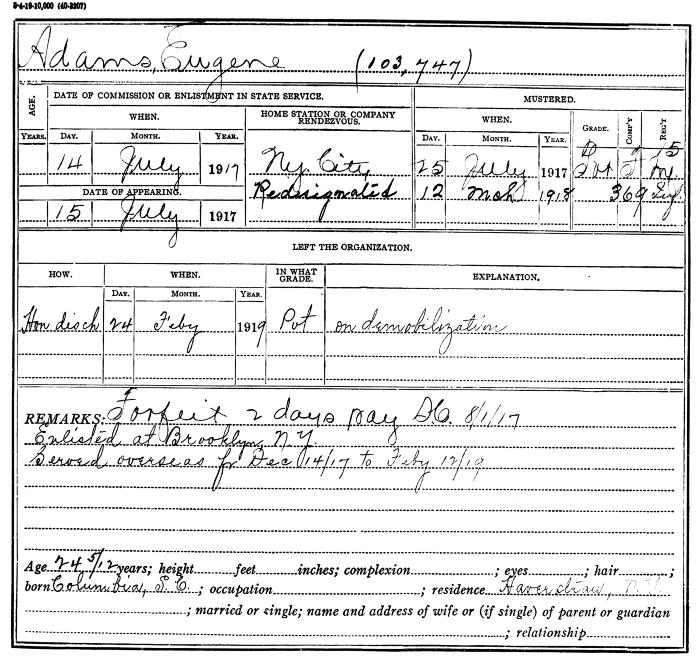 3-4-19-10,000 (40-2207)
Adams, Eugene (103,747)
AGE. DATE OF COMMISSION OR ENLISTMENT IN STATE SERVICE. MUSTERED.
WHEN. HOME STATION OR COMPANY RENDEZVOUS. WHEN. GRADE. COMP'Y REG'T
YEARS. DAY. MONTH. YEAR. DAY. MONTH. YEAR.
14 July 1917 Ny. City 25 July 1917 Pvt 15 Ny.
DATE OF APPEARING. Redesignated 12 Mch 1918 369 Inf.
15 July 1917
LEFT THE ORGANIZATION.
HOW. WHEN. IN WHAT GRADE. EXPLANATION.
DAY. MONTH. YEAR.
Hon disch 24 Feby 1919 Pvt on demobilization
REMARKS: Forfeit 2 days pay DC. 8/1/17
Enlisted at Brooklyn, N.Y.
Served overseas fr Dec 14/17 to Feby 12/19
Age 24 5/12 years; height feet inches; complexion ; eyes ; hair ;
born Columbia, S.C. ; occupation ; residence Haverstraw, N.Y.
; married or single; name and address of wife or (if single) of parent or guardian
; relationship